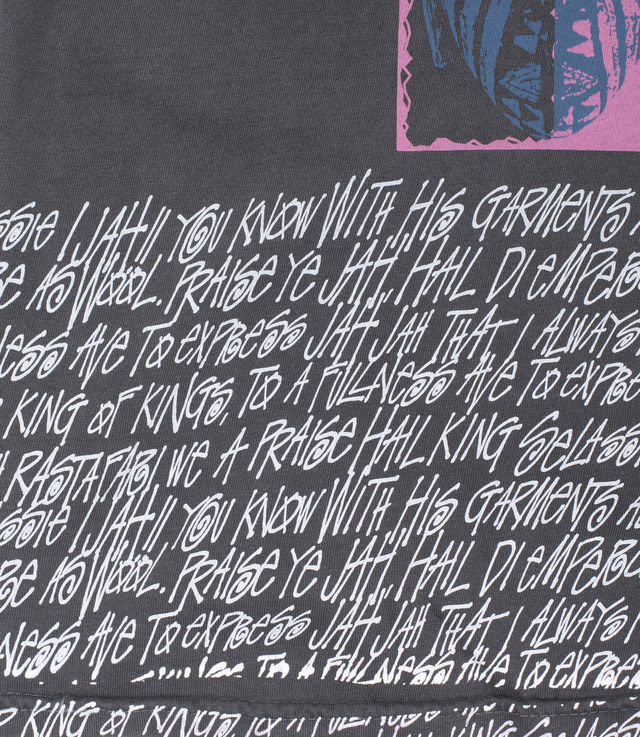 SSIE I JAH!! YOU KNOW WITH HIS GARMENTS
BE AS WOOL. PRAISE YE JAH, HAIL DI EMPERO
NESS AVE TO EXPRESS JAH JAH THAT I ALWAYS
KING OF KINGS, TO A FULLNESS AVE TO EXPRE
RASTAFARI, WE A PRAISE HAIL KING SELASS
SSIE I JAH!! YOU KNOW WITH HIS GARMENTS
BE AS WOOL. PRAISE YE JAH, HAIL DI EMPERO
LNESS AVE TO EXPRESS JAH JAH THAT I ALWAYS
TO A FULLNESS AVE TO EXPRE
KING OF KINGS, TO A